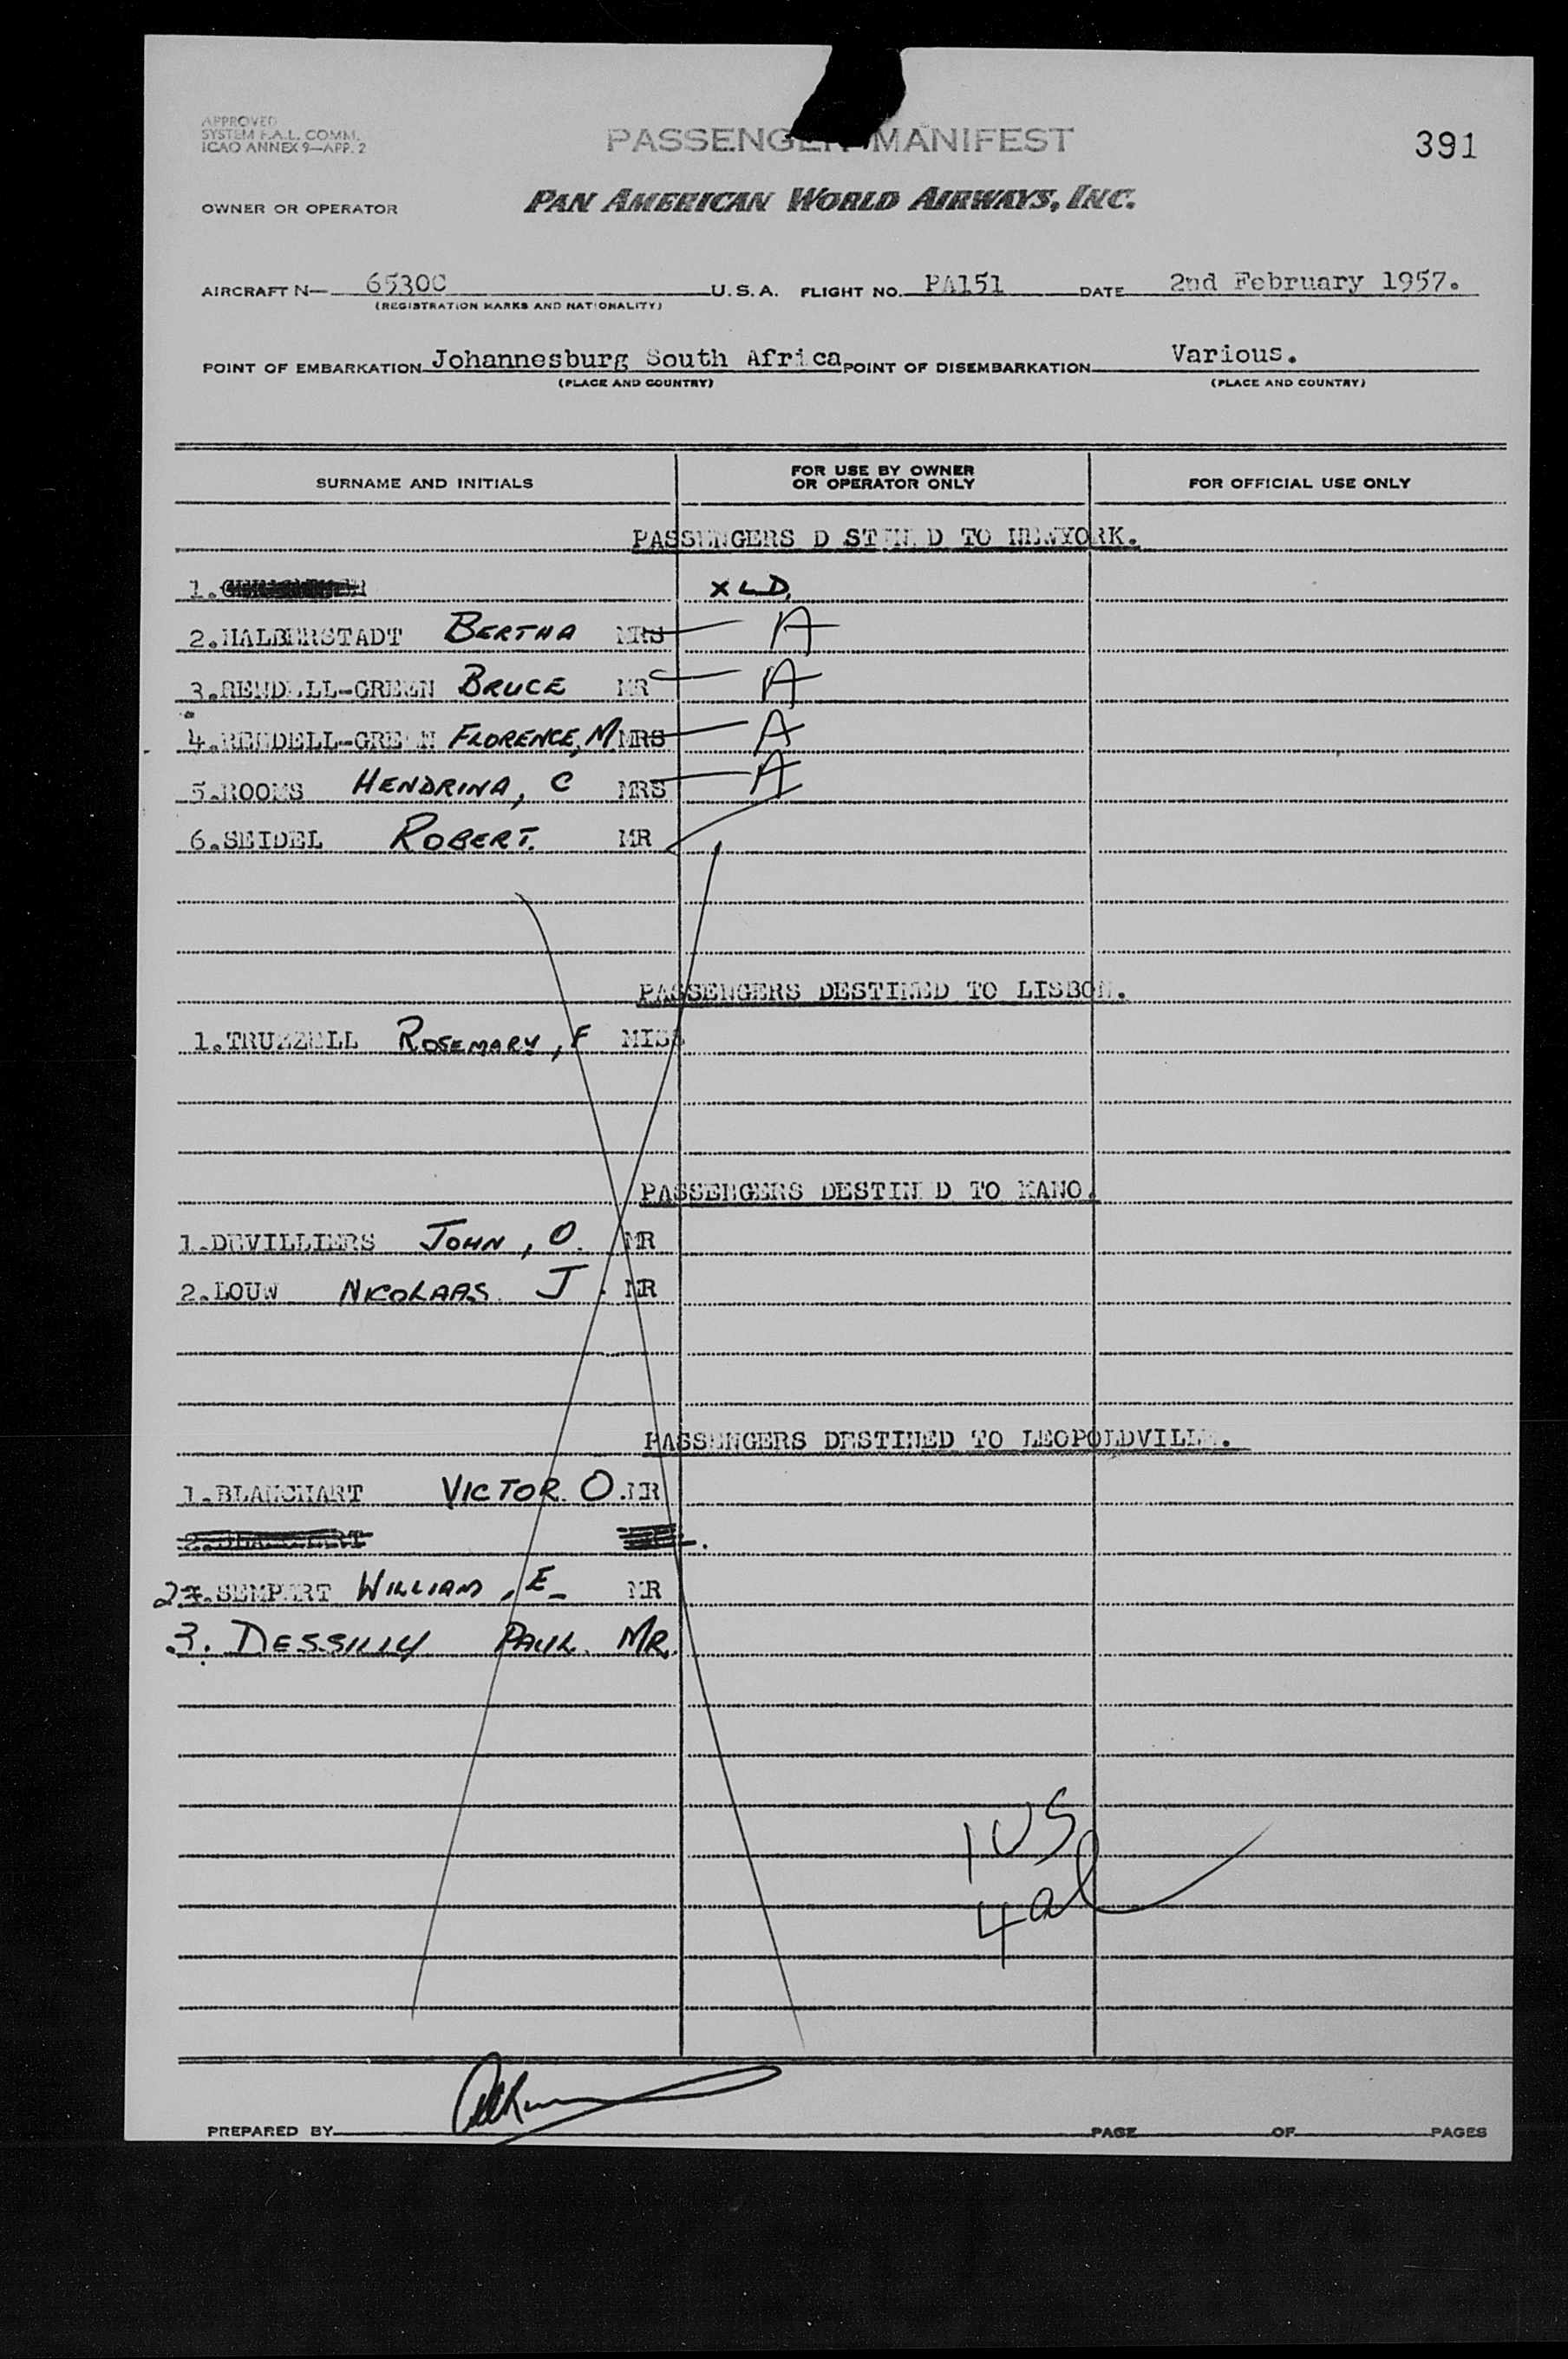 APPROVED
SYSTEM F.A.L. COMM.
ICAO ANNEX 9—APP. 2
PASSENGER MANIFEST
391
OWNER OR OPERATOR
PAN AMERICAN WORLD AIRWAYS, INC.
AIRCRAFT N— 6530C U.S.A. FLIGHT NO. PA151 DATE 2nd February 1957.
(REGISTRATION MARKS AND NATIONALITY)
POINT OF EMBARKATION Johannesburg South Africa POINT OF DISEMBARKATION Various.
(PLACE AND COUNTRY) (PLACE AND COUNTRY)
SURNAME AND INITIALS
FOR USE BY OWNER
OR OPERATOR ONLY
FOR OFFICIAL USE ONLY
PASSENGERS D STIN D TO NEWYORK.
1. XLD.
2.HALBERSTADT BERTHA MRS A
3.RENDELL-GREEN BRUCE MR A
4.RENDELL-GREEN FLORENCE, M MRS A
5.ROOMS HENDRINA, C MRS A
6.SEIDEL ROBERT. MR
PASSENGERS DESTINED TO LISBON.
1. ROSEMARY, F MISS
PASSENGERS DESTIN D TO KANO.
1.DEVILLIERS JOHN, O. MR
2.LOUW NICOLAAS. J. MR
PASSENGERS DESTINED TO LEOPOLDVILLE.
1.BLANCHART VICTOR. O. MR
2.SEMPERT WILLIAM, E. MR
3. DESSILLY PAUL. MR.
1 US
4 al
PREPARED BY PAGE OF PAGES